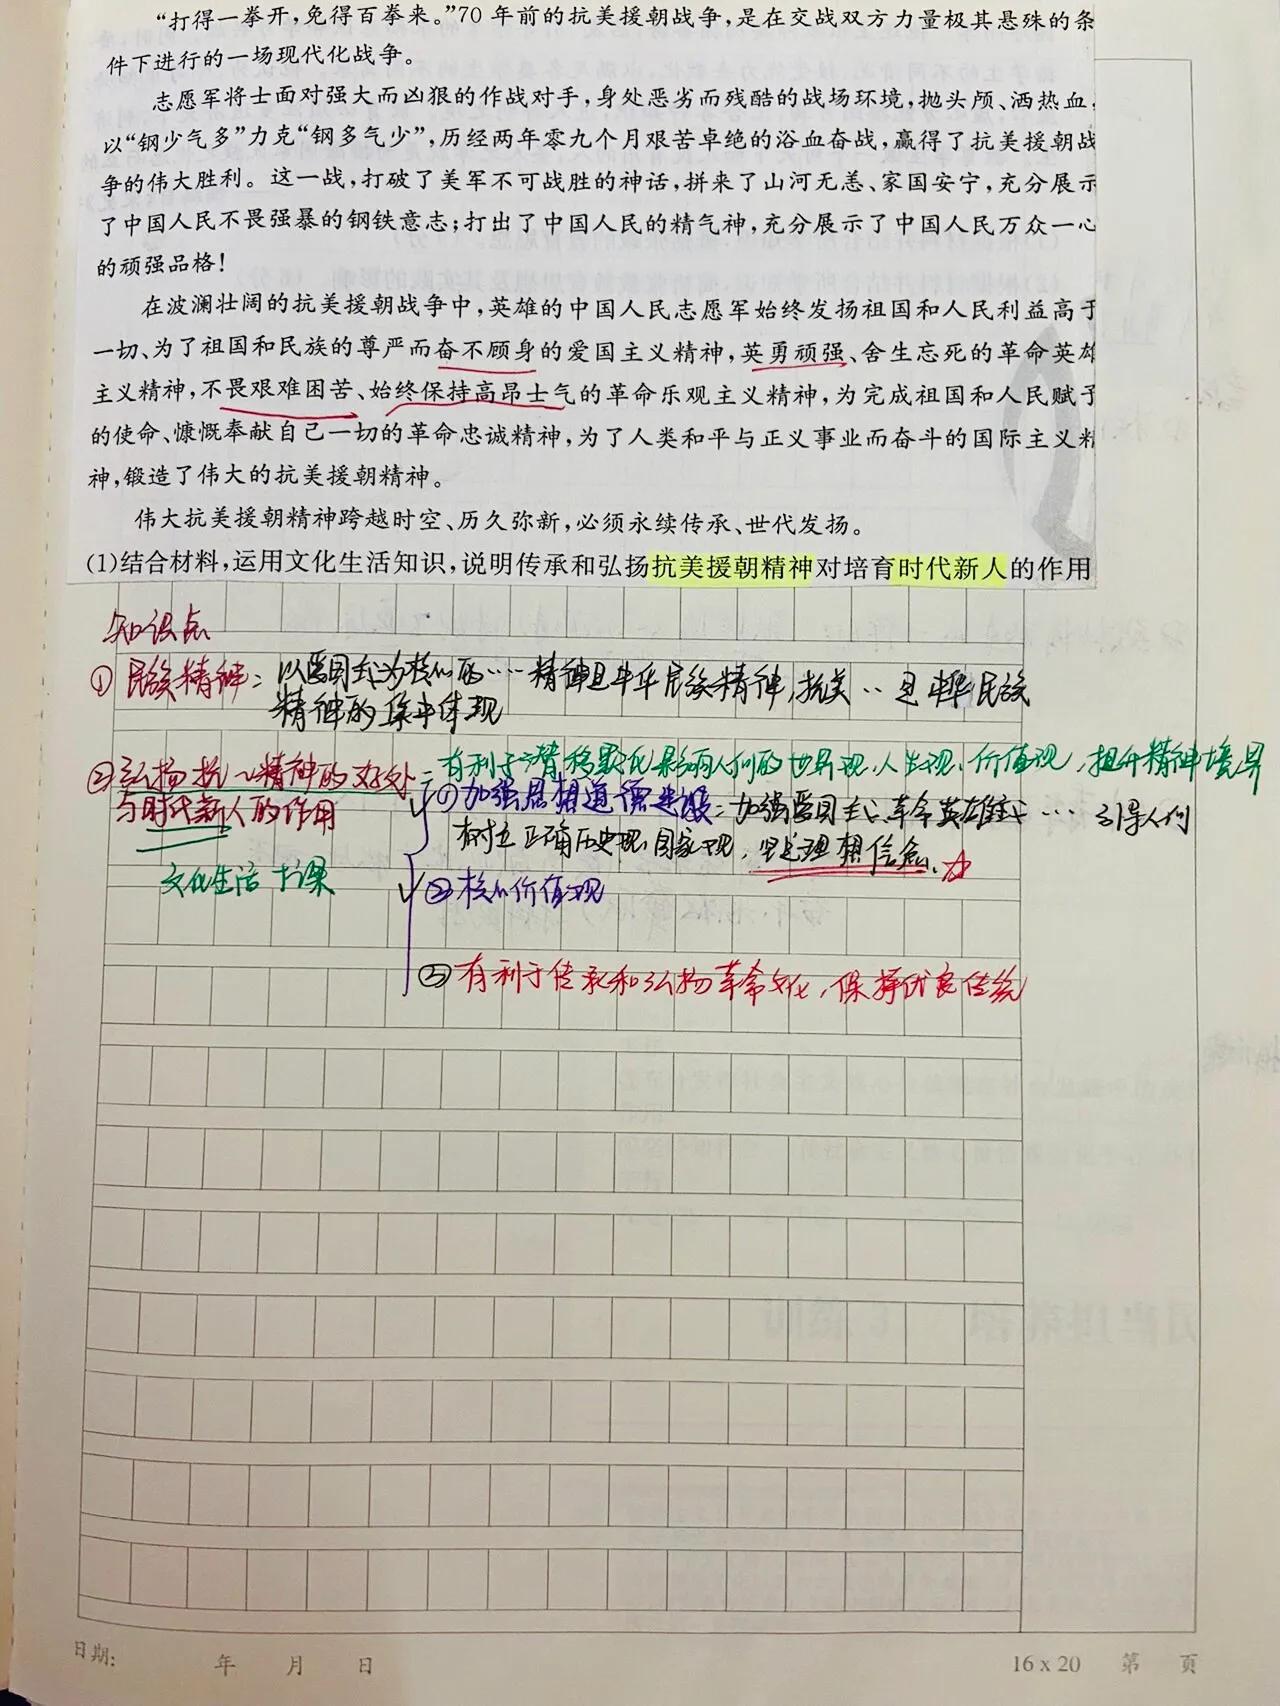 “打得一拳开，免得百拳来。”70年前的抗美援朝战争，是在交战双方力量极其悬殊的条
件下进行的一场现代化战争。
志愿军将士面对强大而凶狠的作战对手，身处恶劣而残酷的战场环境，抛头颅、洒热血，
以“钢少气多”力克“钢多气少”，历经两年零九个月艰苦卓绝的浴血奋战，赢得了抗美援朝战
争的伟大胜利。这一战，打破了美军不可战胜的神话，拼来了山河无恙、家国安宁，充分展示
了中国人民不畏强暴的钢铁意志；打出了中国人民的精气神，充分展示了中国人民万众一心
的顽强品格！
在波澜壮阔的抗美援朝战争中，英雄的中国人民志愿军始终发扬祖国和人民利益高于
一切、为了祖国和民族的尊严而奋不顾身的爱国主义精神，英勇顽强、舍生忘死的革命英雄
主义精神，不畏艰难困苦、始终保持高昂士气的革命乐观主义精神，为完成祖国和人民赋予
的使命、慷慨奉献自己一切的革命忠诚精神，为了人类和平与正义事业而奋斗的国际主义精
神，锻造了伟大的抗美援朝精神。
伟大抗美援朝精神跨越时空、历久弥新，必须永续传承、世代发扬。
(1)结合材料，运用文化生活知识，说明传承和弘扬抗美援朝精神对培育时代新人的作用
知识点
①民族精神：以爱国主义为核心的……精神是中华民族精神，抗美‥是中华民族
精神的集中体现
②弘扬抗～精神的好处：有利于潜移默化影响人们的世界观、人生观、价值观，提升精神境界
与时代新人的作用
①加强思想道德建设：加强爱国主义、革命英雄主义…引导人们
树立正确历史观、国家观，坚定理想信念、
文化生活 十课
②核心价值观
③有利于传承和弘扬革命文化，保持优良传统
日期： 年 月 日
16 x 20 第 页